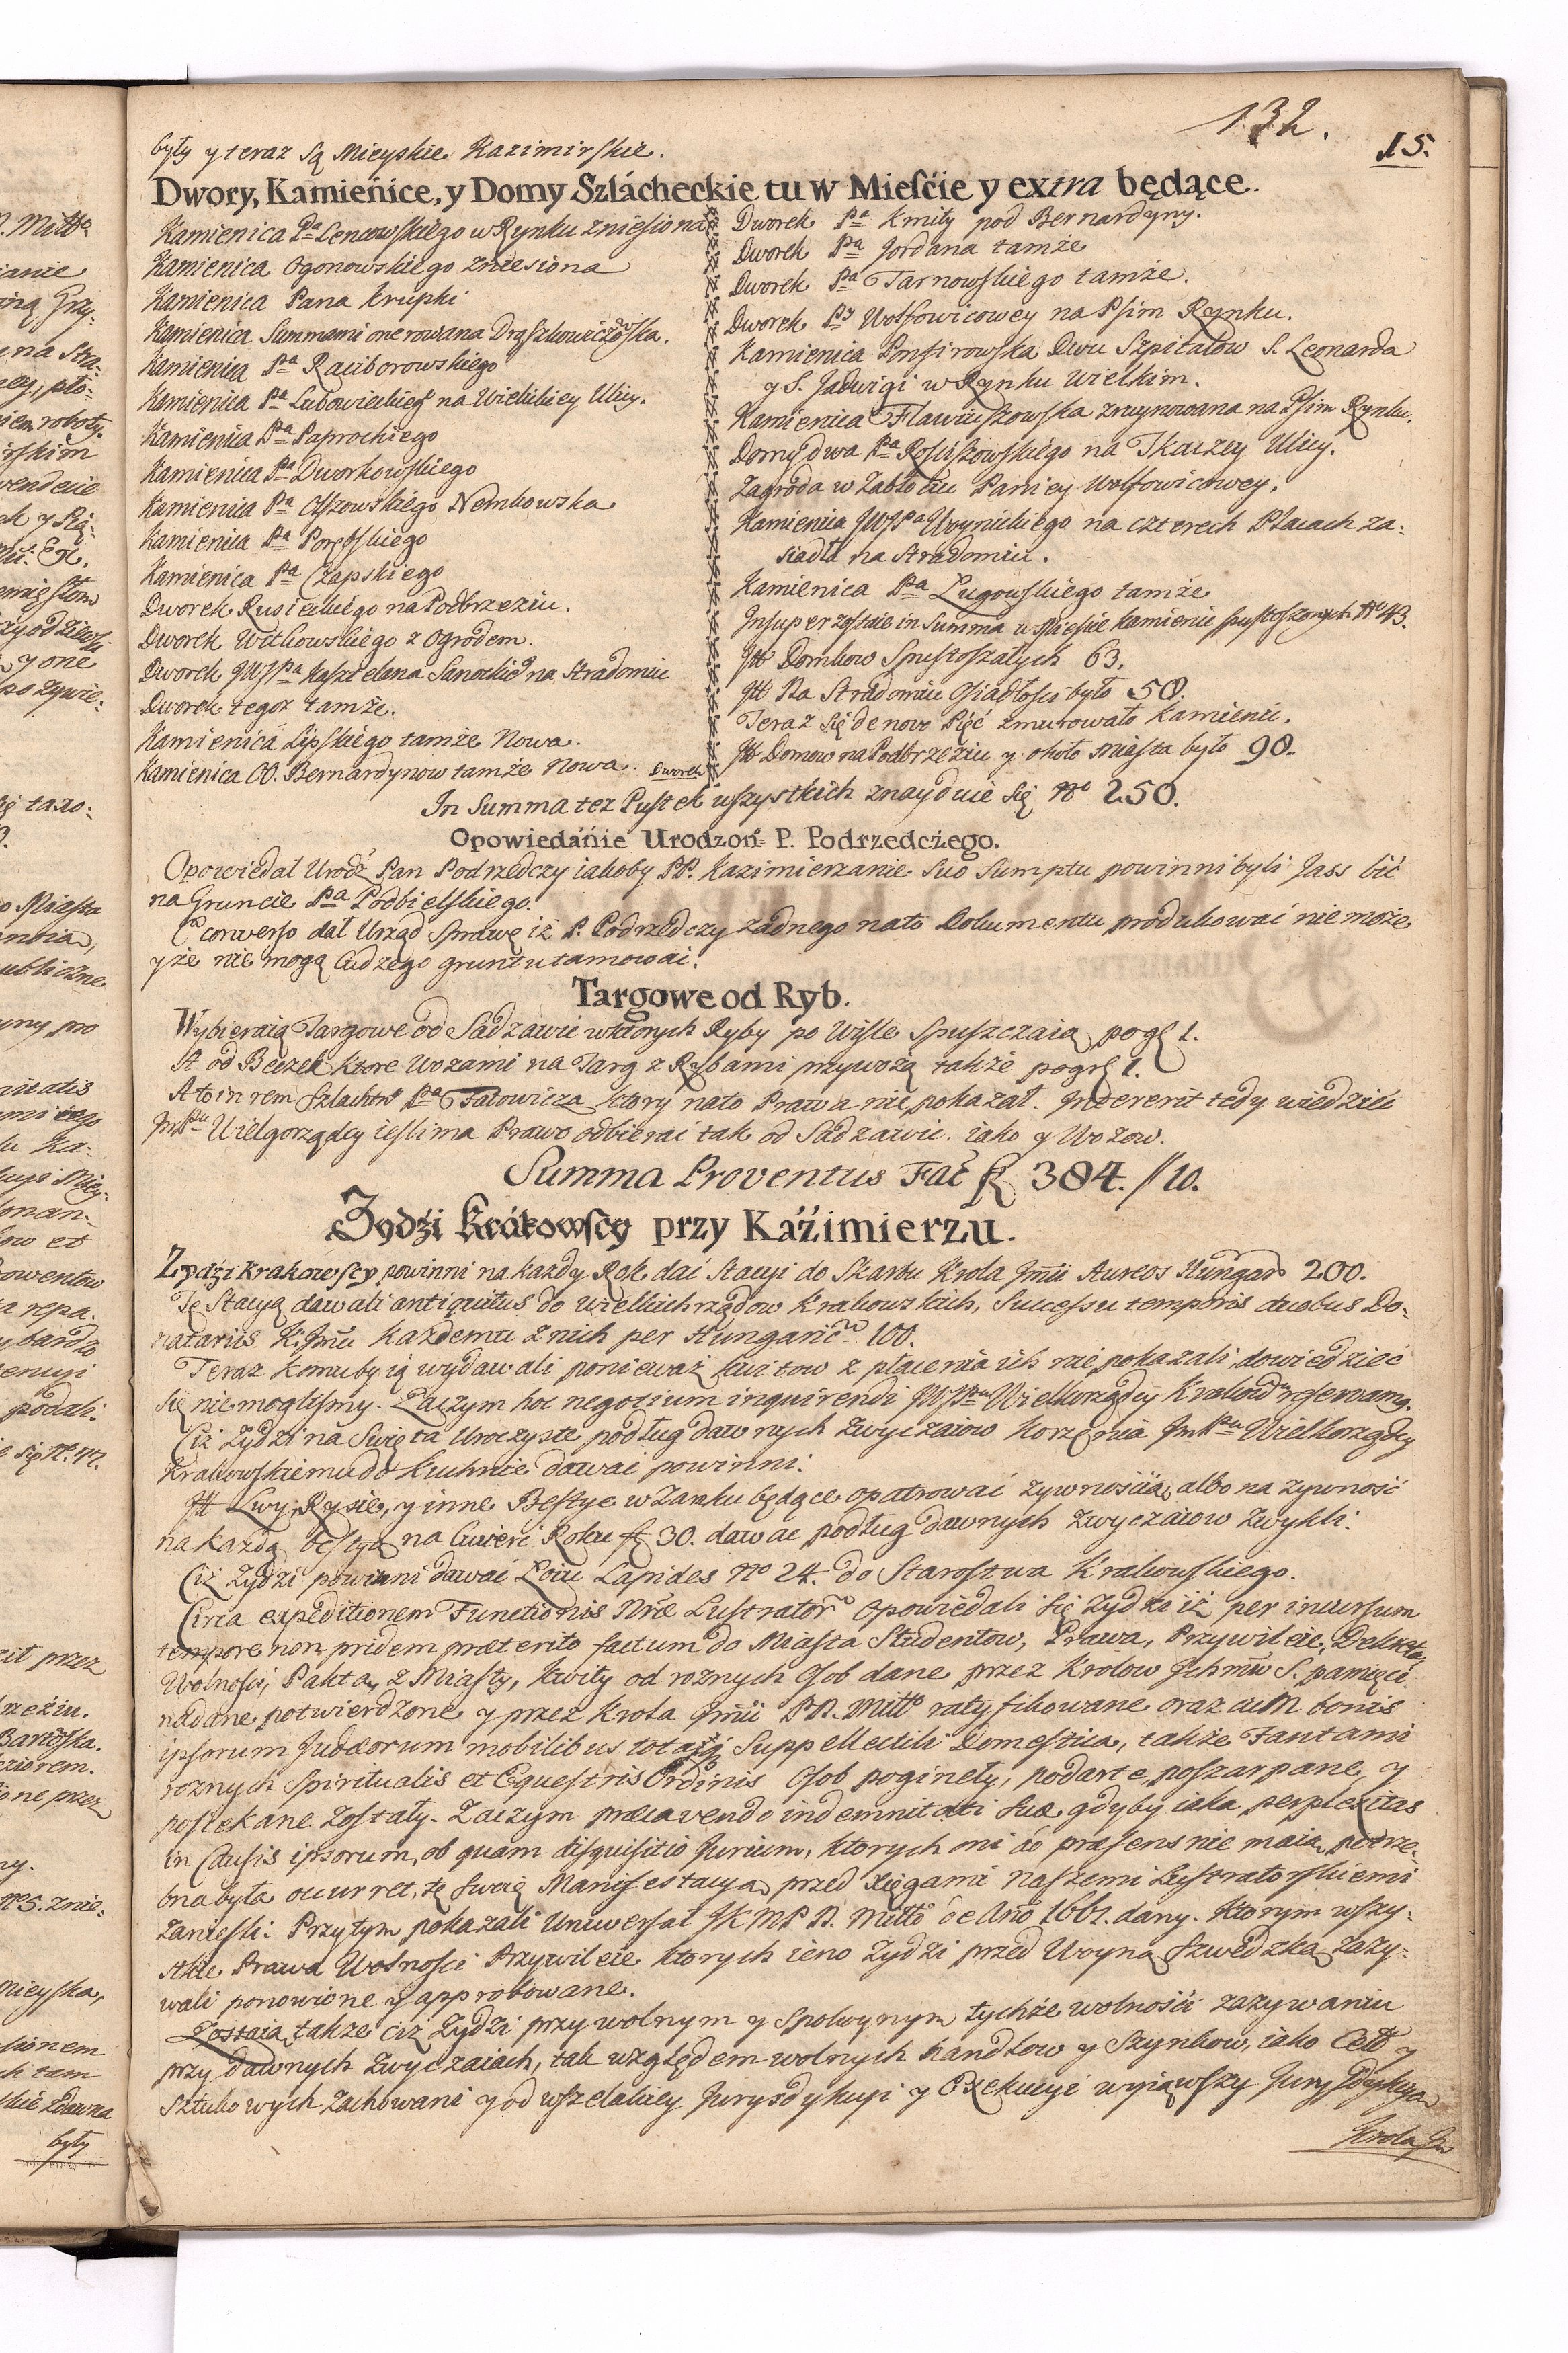 132.
15.
były y teraz są Mieyskie Kazimirskie.
Dwory, Kamienice, y Domy Szlácheckie tu w Mieśćie y extra będące.
Kamienica Pa Lencowskiego w Rynku zniesiona
Kamienica Ogonowskiego zniesiona
Kamienica Pana Krupki
Kamienica Summami onerowana Draszkowiczowska.
Kamienica Pa Raciborowskiego
Kamienica Pa Lubowieckieg na Wielickiey Ulicy.
Kamienica Pa Paprockiego
Kamienica Pa Dworkowskiego
Kamienica Pa Olszowskiego Nemkowska
Kamienica Pa Porębskiego
Kamienica Pa Czapskiego
Dworek Rusieckiego na Podbrzeziu.
Dworek Witkowskiego z Ogrodem.
Dworek JWJPa Kasztelana Sanockieo na Stradomiu
Dworek tegoz tamże.
Kamienica Lipskiego tamże Nowa.
Kamienica OO. Bernardynow tamże Nowa.
Dworek
Dworek Pa Kmity pod Bernardyny.
Dworek Pa Jordana tamże
Dworek Pa Tarnowskiego tamże.
Dworek Py Wolfowicowey na Psim Rynku.
Kamienica Porfirowska Dwu Szpitalow S. Leonarda
y S. Jadwigi w Rynku Wielkim.
Kamienica Flawiuszowska zruynowana na Psim Rynku.
Domy dwa Pa Rosiszowskiego na Tkaczey Ulicy.
Zagroda w Zabłociu Paniey Wolfowicowey.
Kamienica JWJPa Woynickiego na czterech Placach za-
siadła na Stradomiu.
Kamienica Pa Ługowskiego tamże
Insuper zostaie in Summa w Mieście Kamienic spustoszonych No 43.
Itt Domkow Spustoszałych 63.
Itt Na Stradomiu Osiadłości było 50.
Teraz się de novo Pięć zmurowało Kamienic.
Itt Domow na Podbrzeziu y około Miasta było 90.
In Summa tez Pustek wszystkich znayduie się No 250.
Opowiedánie Urodzon= P. Podrzedczego.
Opowiedał Urodź Pan Podrzedczy iakoby PP. Kazimierzanie Suo Sumptu powinni byli Jass bić
na Gruncie Pa Podbielskiego.
E converso dał Urząd Sprawę iż P. Podrzedczy żadnego nato Dokumentu produkować nie może
y że nie mogą Cudzego gruntu tamować.
Targowe od Ryb.
Wybieraią Targowe od Sadzawic w ktorych Ryby po Wiśle Spuszczaią po gr 1.
A od Beczek ktore Wozami na Targ z Rybami przywożą także po gr 1.
Ato in rem Szlachtno Pa Fatowicza ktory nato Prawa nie pokazał. Intererit tedy wiedzieć
JmPu Wielgorządcy ieslima Prawo odbierać tak od Sadzawic. iako y Wozow.
Summa Proventus Fac fl 384. // 10.
Żydźi Krákowscy przy Kaźimierzu.
Żydźi Krakowscy powinni na każdy Rok dać Stacyi do Skarbu Krola Jmci Aureos Hungar 200.
Tę Stacyą dawali antiquitus do wielkich rządow Krakowskich, Successu temporis duobus Do-
natariis K. Jmci Każdemu z nich per Hungaric 100.
Teraz Komuby ią wydawali ponieważ Kwitow z płacenia ich nie pokazali, dowiedzieć
się nie moglismy. Zaczym hoc negotium inquirendi JWJPu Wielkorządcy Krakow reservamg.
Ciż Żydzi na Święta Uroczyste podług dawnych Zwyczaiow Korzenia JmPu Wielkorządcy
Krakowskiemu do Kuchnie dawać powinni.
Itt Lwy, Rysie, y inne Bestye w Zamku będące opatrować żywnością, albo na zywność
na każdą bestyą na Cwierć Roku fl 30. dawać podług dawnych Zwyczaiow Zwykli.
Ciż Żydzi powinni dawać Łoiu Lapides No 24. do Starostwa Krakowskiego.
Circa expeditionem Functionis Nrae Lustrator opowiedali się Żydzi iż per incursum
tempore non pridem praeterito factum do Miasta Studentow, Prawa, Przywileie, Dekreta,
Wolności, Pakta, z Miasty, Kwity od roznych Osob dane przez Krolow Jchmw S. pamięci
nadane potwierdzone y przez Krola Jmci PN. Mitto ratyfikowane oraz cum bonis
ipsorum Judaeorum mobilibus totaq Suppellectili Domestica, także Fantami
roznych Spiritualis et Equestris Ordinis Osob poginęły, podarte, poszarpane, y
posiekane Zostały. Zaczym praecavendo indemnitati Suae gdyby iaka perplexitas
in Causis ipsorum, ob quam disquisitio Jurium, ktorych oni ad praesens nie maią, potrze-
bna była occurret, tę Swoię Manifestacyą przed Xięgami Naszemi Lustratorskiemi
Zanieśli: Przytym pokazali Uniwersał JKMP N. Mitto de Ano 1661. dany. Ktorym wszy-
stkie Prawa Wolności Przywileie ktorych ieno Żydzi przed Woyną Szwedzką Zazy-
wali ponowione y approbowane.
Zostaią także ciż Żydzi przy wolnym y Spokoynym tychże wolności zazywaniu
przy dawnych Zwyczaiach, tak względem wolnych handlow y Szynkow, iako Cełł y
Sztukowych Zachowani y od wszelakiey Jurysdykcyi y Exekucyi wyiąwszy Jurysdykcyą
Krola Jm